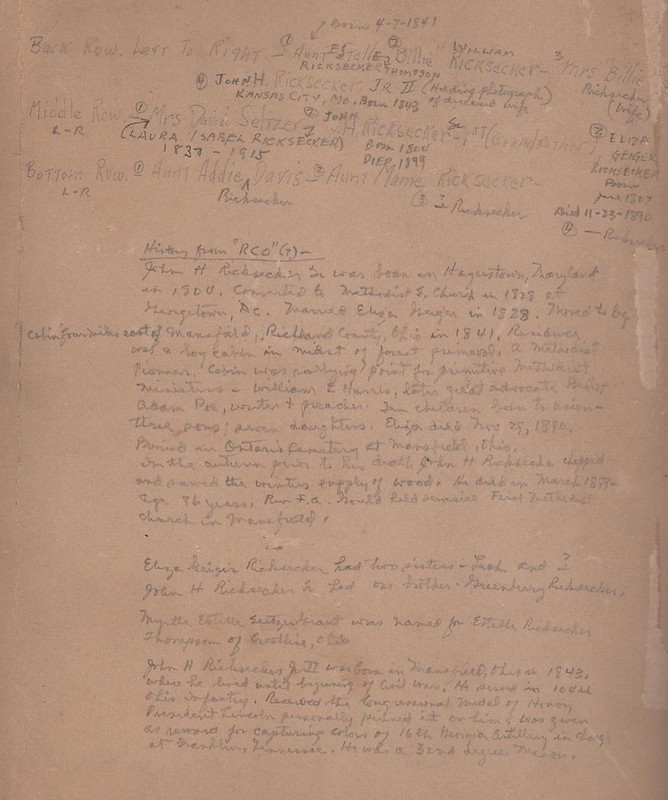 Born 4-7-1841
Back Row. Left To Right - ① Aunt Estelle ② "Billie" WILLIAM ③ Mrs "Billie"
RICKSECKER THOMPSON RICKSECKER - Ricksecker
④ JOHN H. Ricksecker JR II (Holding photograph) (Wife)
KANSAS CITY, MO. Born 1843 of deceased wife
Middle Row ① Mrs David Seltzer ② JOHN H. Ricksecker Sr 1ST (Grandfather) ③ ELIZA
L-R (LAURA ISABEL RICKSECKER) Born 1804 GEIGER
1837 - 1915 DIED, 1899 RICKSECKER
Bottom Row. ① Aunt Addie Davis ② Aunt Mame Ricksecker - Born
L-R Ricksecker ③ ? Ricksecker 1807
Died 11-23-1890
④ - Ricksecker
History from "RCO" (?) -
John H Ricksecker Sr was born in Hagerstown, Maryland
in 1804. Converted to Methodist E. Church in 1828 at
Georgetown, D.C. Married Eliza Geiger in 1828. Moved to log
cabin four miles east of Mansfield, Richland County, Ohio in 1841. Residence
was a log cabin in midst of forest primeval. A Methodist
Pioneer. Cabin was rallying point for primitive Methodist
ministers - William E Harris, later great advocate Bishop
Adam Poe, writer & preacher. Ten children born to union -
three sons; seven daughters. Eliza died Nov 29, 1890.
Buried in Ontario Cemetery at Mansfield, Ohio.
In the autumn prior to his death John H Ricksecker chopped
and sawed the winters supply of wood. He died in March
age 96 years. Rev F.A. Gould held services First Methodist
church in Mansfield.
Eliza Geiger Ricksecker had two sisters - Leah and ?
John H Ricksecker Sr. had one brother - Greenberry Ricksecker.
Myrtle Estelle was named for Estelle Ricksecker
Thompson of Crestline, Ohio
John H Ricksecker Jr II was born in Mansfield, Ohio in 1843,
where he lived until beginning of Civil War. He served in 104th
Ohio infantry. Received the Congressional Medal of Honor,
President Lincoln personally pinned it on him & was given
as reward for capturing colors of 16th Georgia Artillery in
at Franklin, Tennessee. He was a 32nd degree Mason.